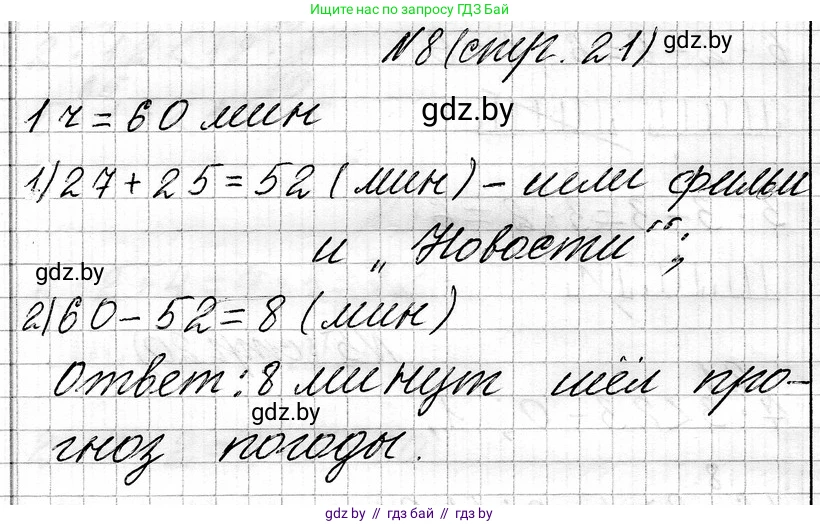 Ищите нас по запросу ГДЗ Бай
N8 (стр. 21) gdz.by
1 ч = 60 мин gdz.by
1) 27 + 25 = 52 ( мин ) – шли фильм
и „ Новости ";
gdz.by
2) 60 – 52 = 8 ( мин )
Ответ: 8 минут шёл про-
gdz.by
гноз погоды.
gdz.by // гдз бай // gdz.by